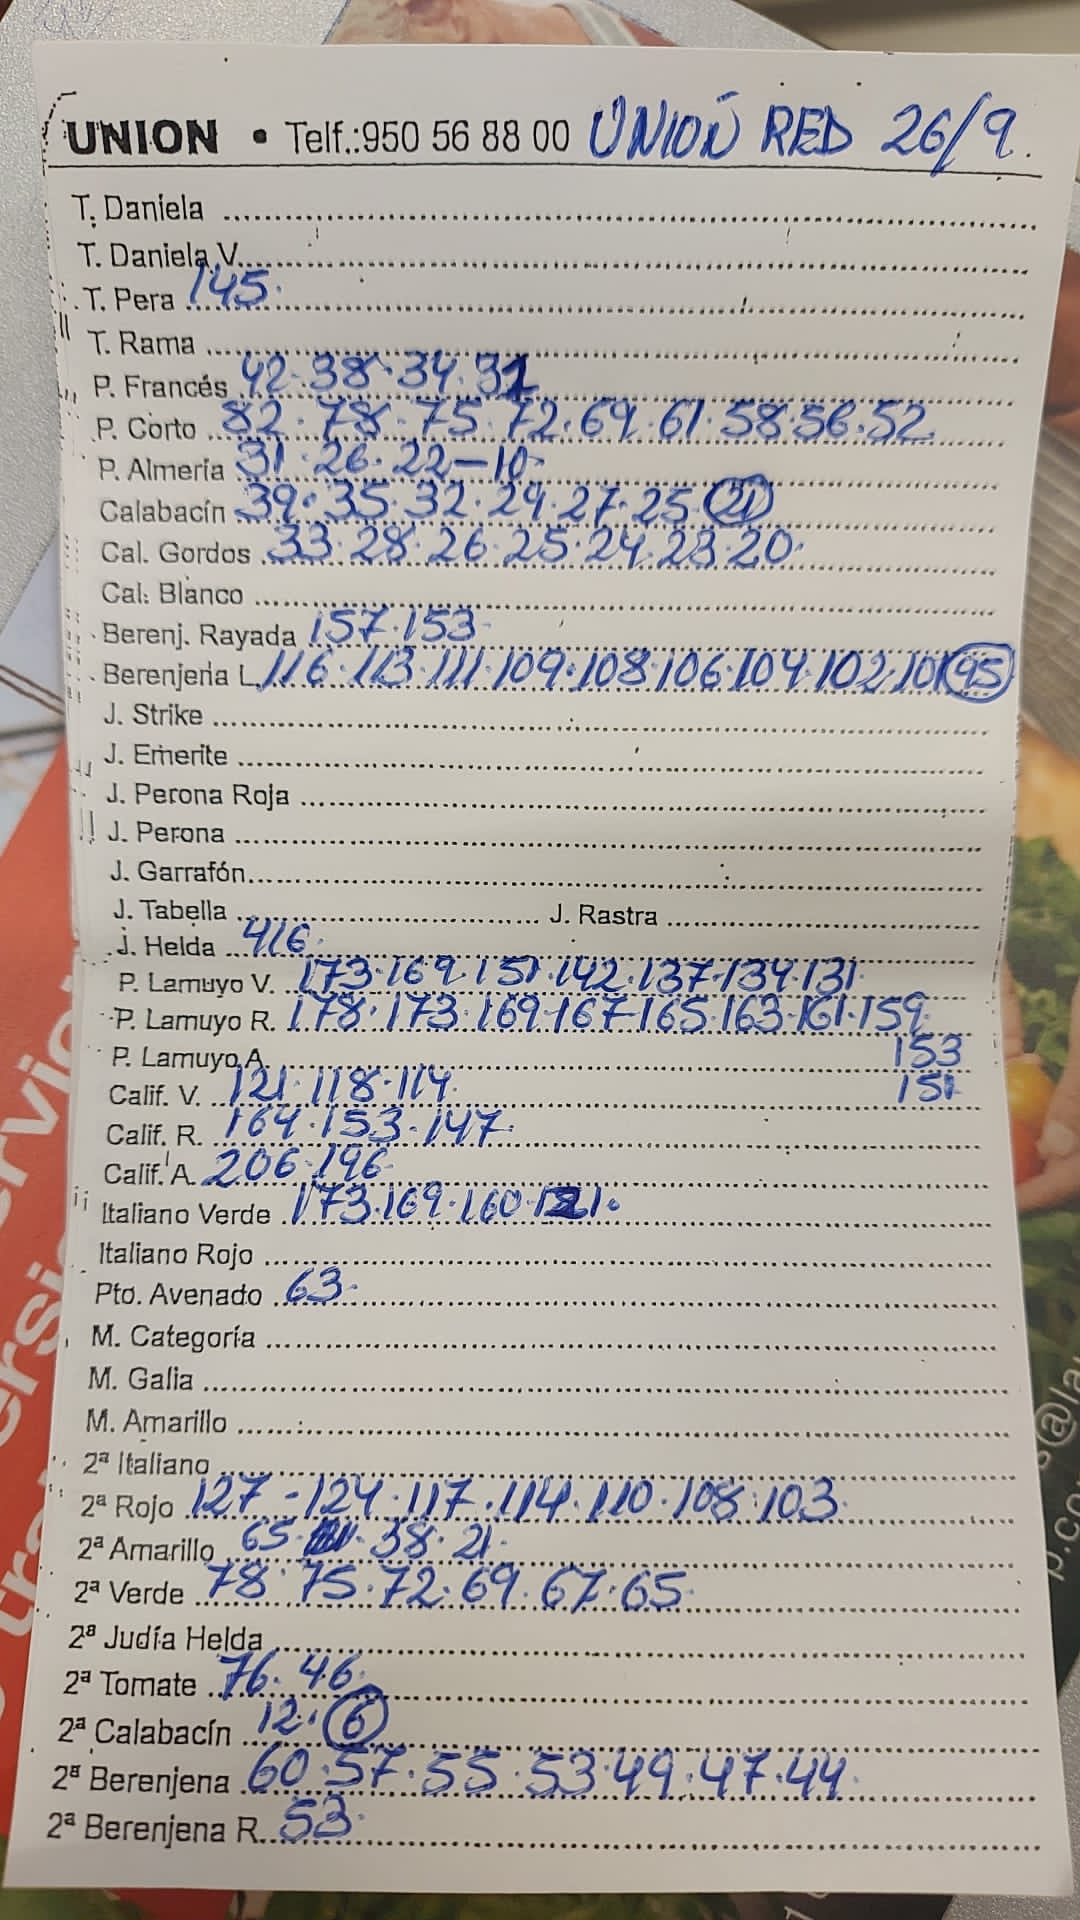 UNION • Telf.:950 56 88 00 UNION RED 26/9.
T. Daniela
T. Daniela V.
T. Pera 145.
T. Rama
P. Francés 42.38.34.31
P. Corto 82.78.75.72.69.61.58.56.52
P. Almería 31.26.22-10-
Calabacín 39.35.32.29.27.25.(21)
Cal. Gordos 33.28.26.25.24.23.20.
Cal. Blanco
Berenj. Rayada 157.153-
Berenjena L. 116.113.111.109.108.106.104.102.101 (95)
J. Strike
J. Emerite
J. Perona Roja
J. Perona
J. Garrafón
J. Tabella J. Rastra
J. Helda 416.
P. Lamuyo V. 173.169.151.142.137.134.131.
P. Lamuyo R. 178.173.169.167.165.163.161.159.
P. Lamuyo A. 153
Calif. V. 121.118.114. 151
Calif. R. 164.153.147.
Calif. A. 206.196
Italiano Verde 173.169.160
Italiano Rojo
Pto. Avenado 63.
M. Categoría
M. Galia
M. Amarillo
2ª Italiano
2ª Rojo 127-124.117.114.110.108.103.
2ª Amarillo 65. 38.21.
2ª Verde 78.75.72.69.67.65.
2ª Judía Helda
2ª Tomate 76.46.
2ª Calabacín 12.(6)
2ª Berenjena 60.57.55.53.49.47.44.
2ª Berenjena R. 53.